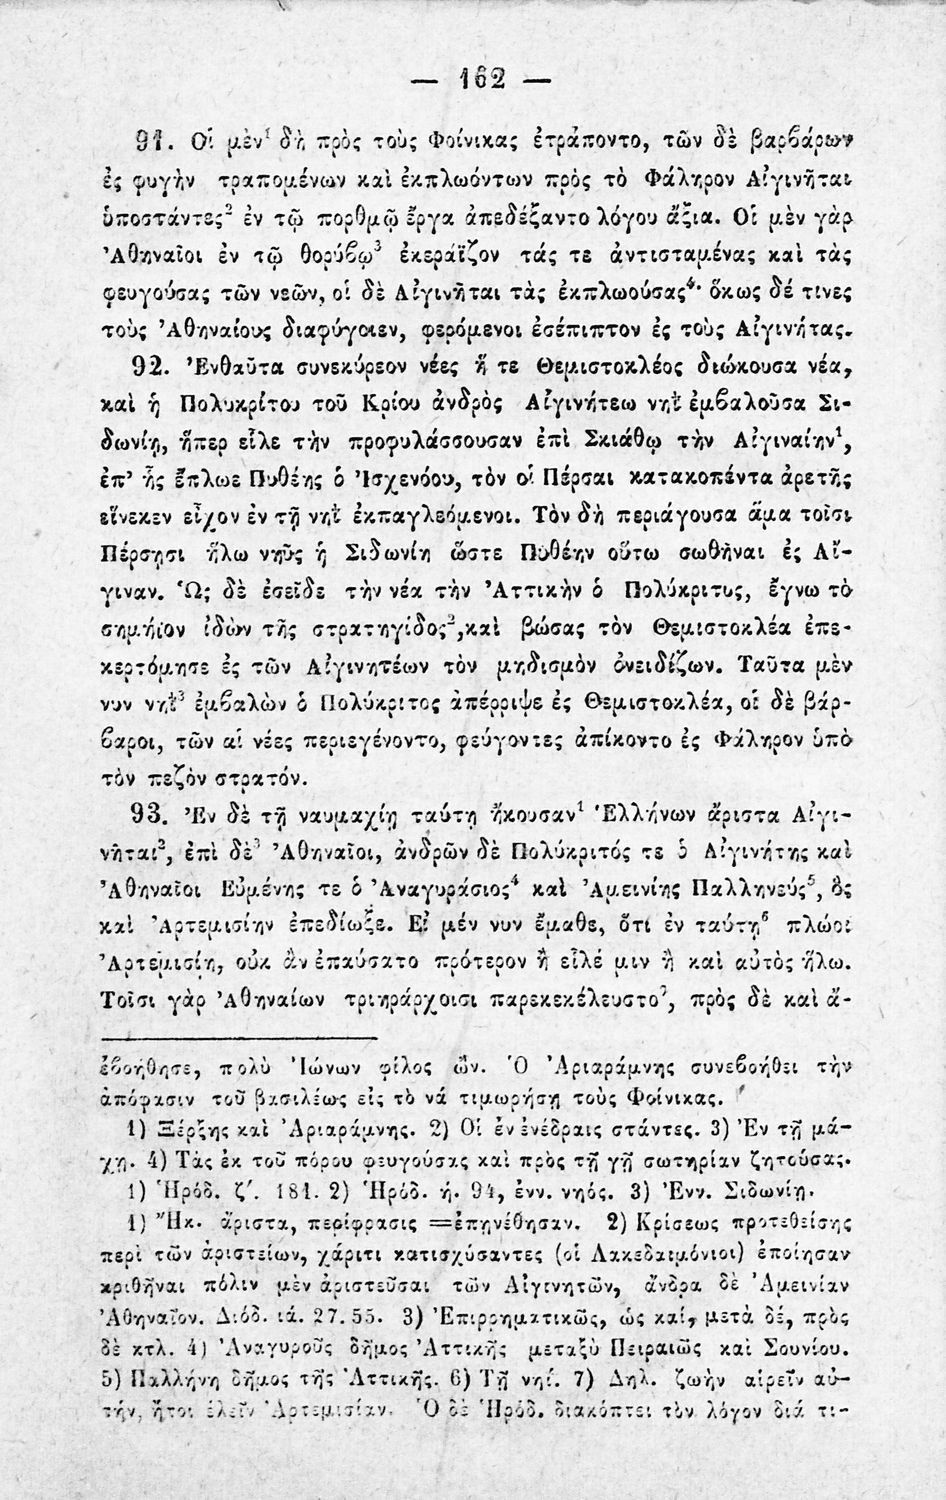 — 162 —
91. Οἱ μὲν¹ δὴ πρὸς τοὺς Φοίνικας ἐτράποντο, τῶν δὲ βαρβάρων
ἐς φυγὴν τραπομένων καὶ ἐκπλωόντων πρὸς τὸ Φάληρον Αἰγινῆται
ὑποστάντες² ἐν τῷ πορθμῷ ἔργα ἀπεδέξαντο λόγου ἄξια. Οἱ μὲν γὰρ
Ἀθηναῖοι ἐν τῷ θορύβῳ³ ἐκεράϊζον τάς τε ἀντισταμένας καὶ τὰς
φευγούσας τῶν νεῶν, οἱ δὲ Αἰγινῆται τὰς ἐκπλωούσας⁴· ὅκως δέ τινες
τοὺς Ἀθηναίους διαφύγοιεν, φερόμενοι ἐσέπιπτον ἐς τοὺς Αἰγινήτας.
92. Ἐνθαῦτα συνεκύρεον νέες ἥ τε Θεμιστοκλέος διώκουσα νέα,
καὶ ἡ Πολυκρίτου τοῦ Κρίου ἀνδρὸς Αἰγινήτεω νηῒ ἐμβαλοῦσα Σι-
δωνίῃ, ἥπερ εἷλε τὴν προφυλάσσουσαν ἐπὶ Σκιάθῳ τὴν Αἰγιναίην¹,
ἐπ’ ἧς ἔπλωε Πυθέης ὁ Ἰσχενόου, τὸν οἱ Πέρσαι κατακοπέντα ἀρετῆς
εἵνεκεν εἶχον ἐν τῇ νηῒ ἐκπαγλεόμενοι. Τὸν δὴ περιάγουσα ἅμα τοῖσι
Πέρσῃσι ἥλω νηῦς ἡ Σιδωνίη ὥστε Πυθέην οὕτω σωθῆναι ἐς Αἴ-
γιναν. Ὡς δὲ ἐσεῖδε τὴν νέα τὴν Ἀττικὴν ὁ Πολύκριτος, ἔγνω τὸ
σημήϊον ἰδὼν τῆς στρατηγίδος², καὶ βώσας τὸν Θεμιστοκλέα ἐπε-
κερτόμησε ἐς τῶν Αἰγινητέων τὸν μηδισμὸν ὀνειδίζων. Ταῦτα μὲν
νυν νηῒ³ ἐμβαλὼν ὁ Πολύκριτος ἀπέρριψε ἐς Θεμιστοκλέα, οἱ δὲ βάρ-
βαροι, τῶν αἱ νέες περιεγένοντο, φεύγοντες ἀπίκοντο ἐς Φάληρον ὑπὸ
τὸν πεζὸν στρατόν.
93. Ἐν δὲ τῇ ναυμαχίῃ ταύτῃ ἤκουσαν¹ Ἑλλήνων ἄριστα Αἰγι-
νῆται², ἐπὶ δὲ³ Ἀθηναῖοι, ἀνδρῶν δὲ Πολύκριτός τε ὁ Αἰγινήτης καὶ
Ἀθηναῖοι Εὐμένης τε ὁ Ἀναγυράσιος⁴ καὶ Ἀμεινίης Παλληνεύς⁵, ὃς
καὶ Ἀρτεμισίην ἐπεδίωξε. Εἰ μέν νυν ἔμαθε, ὅτι ἐν ταύτῃ⁶ πλώοι
Ἀρτεμισίη, οὐκ ἂν ἐπαύσατο πρότερον ἢ εἷλέ μιν ἢ καὶ αὐτὸς ἥλω.
Τοῖσι γὰρ Ἀθηναίων τριηράρχοισι παρεκεκέλευστο⁷, πρὸς δὲ καὶ ἄ-
ἐβοήθησε, πολὺ Ἰώνων φίλος ὤν. Ὁ Ἀριαράμνης συνεβοήθει τὴν
ἀπόφασιν τοῦ βασιλέως εἰς τὸ νά τιμωρήσῃ τοὺς Φοίνικας.
1) Ξέρξης καὶ Ἀριαράμνης. 2) Οἱ ἐν ἐνέδραις στάντες. 3) Ἐν τῇ μά-
χῃ. 4) Τὰς ἐκ τοῦ πόρου φευγούσας καὶ πρὸς τῇ γῇ σωτηρίαν ζητούσας.
1) Ἡρόδ. ζ′. 181. 2) Ἡρόδ. ή. 94, ἐνν. νηός. 3) Ἐνν. Σιδωνίῃ.
1) Ἤκ. ἄριστα, περίφρασις = ἐπῃνέθησαν. 2) Κρίσεως προτεθείσης
περὶ τῶν ἀριστείων, χάριτι κατισχύσαντες (οἱ Λακεδαιμόνιοι) ἐποίησαν
κριθῆναι πόλιν μὲν ἀριστεῦσαι τῶν Αἰγινητῶν, ἄνδρα δὲ Ἀμεινίαν
Ἀθηναῖον. Διόδ. ιά. 27. 55. 3) Ἐπιρρηματικῶς, ὡς καί, μετὰ δέ, πρὸς
δὲ κτλ. 4) Ἀναγυροῦς δῆμος Ἀττικῆς μεταξὺ Πειραιῶς καὶ Σουνίου.
5) Παλλήνη δῆμος τῆς Ἀττικῆς. 6) Τῇ νηί. 7) Δηλ. ζωὴν αἱρεῖν αὐ-
τήν, ἤτοι ἑλεῖν Ἀρτεμισίαν. Ὁ δὲ Ἡρόδ. διακόπτει τὸν λόγον διά τι-